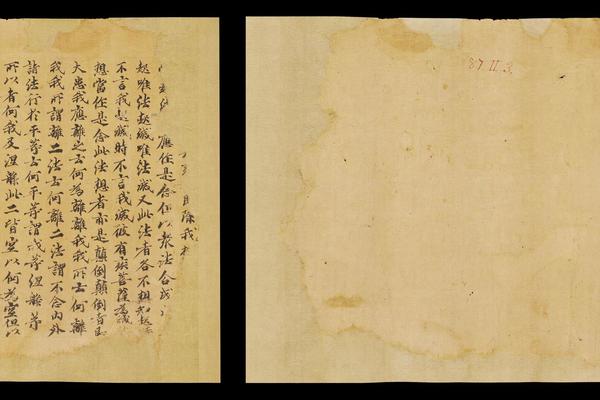 除我
應作是念但以眾法合成
起唯法起滅唯法滅又此法者各不相知起
不言我起滅時不言我滅彼有疾菩薩為滅
想當作是念此法想者亦是顛倒顛倒者即
大患我應離之云何為離離我我所云何離
我我所謂離二法云何離二法謂不念內外
諸法行於平等云何平等謂我等涅槃等
所以者何我及涅槃此二皆空以何為空但以
87.II.3.